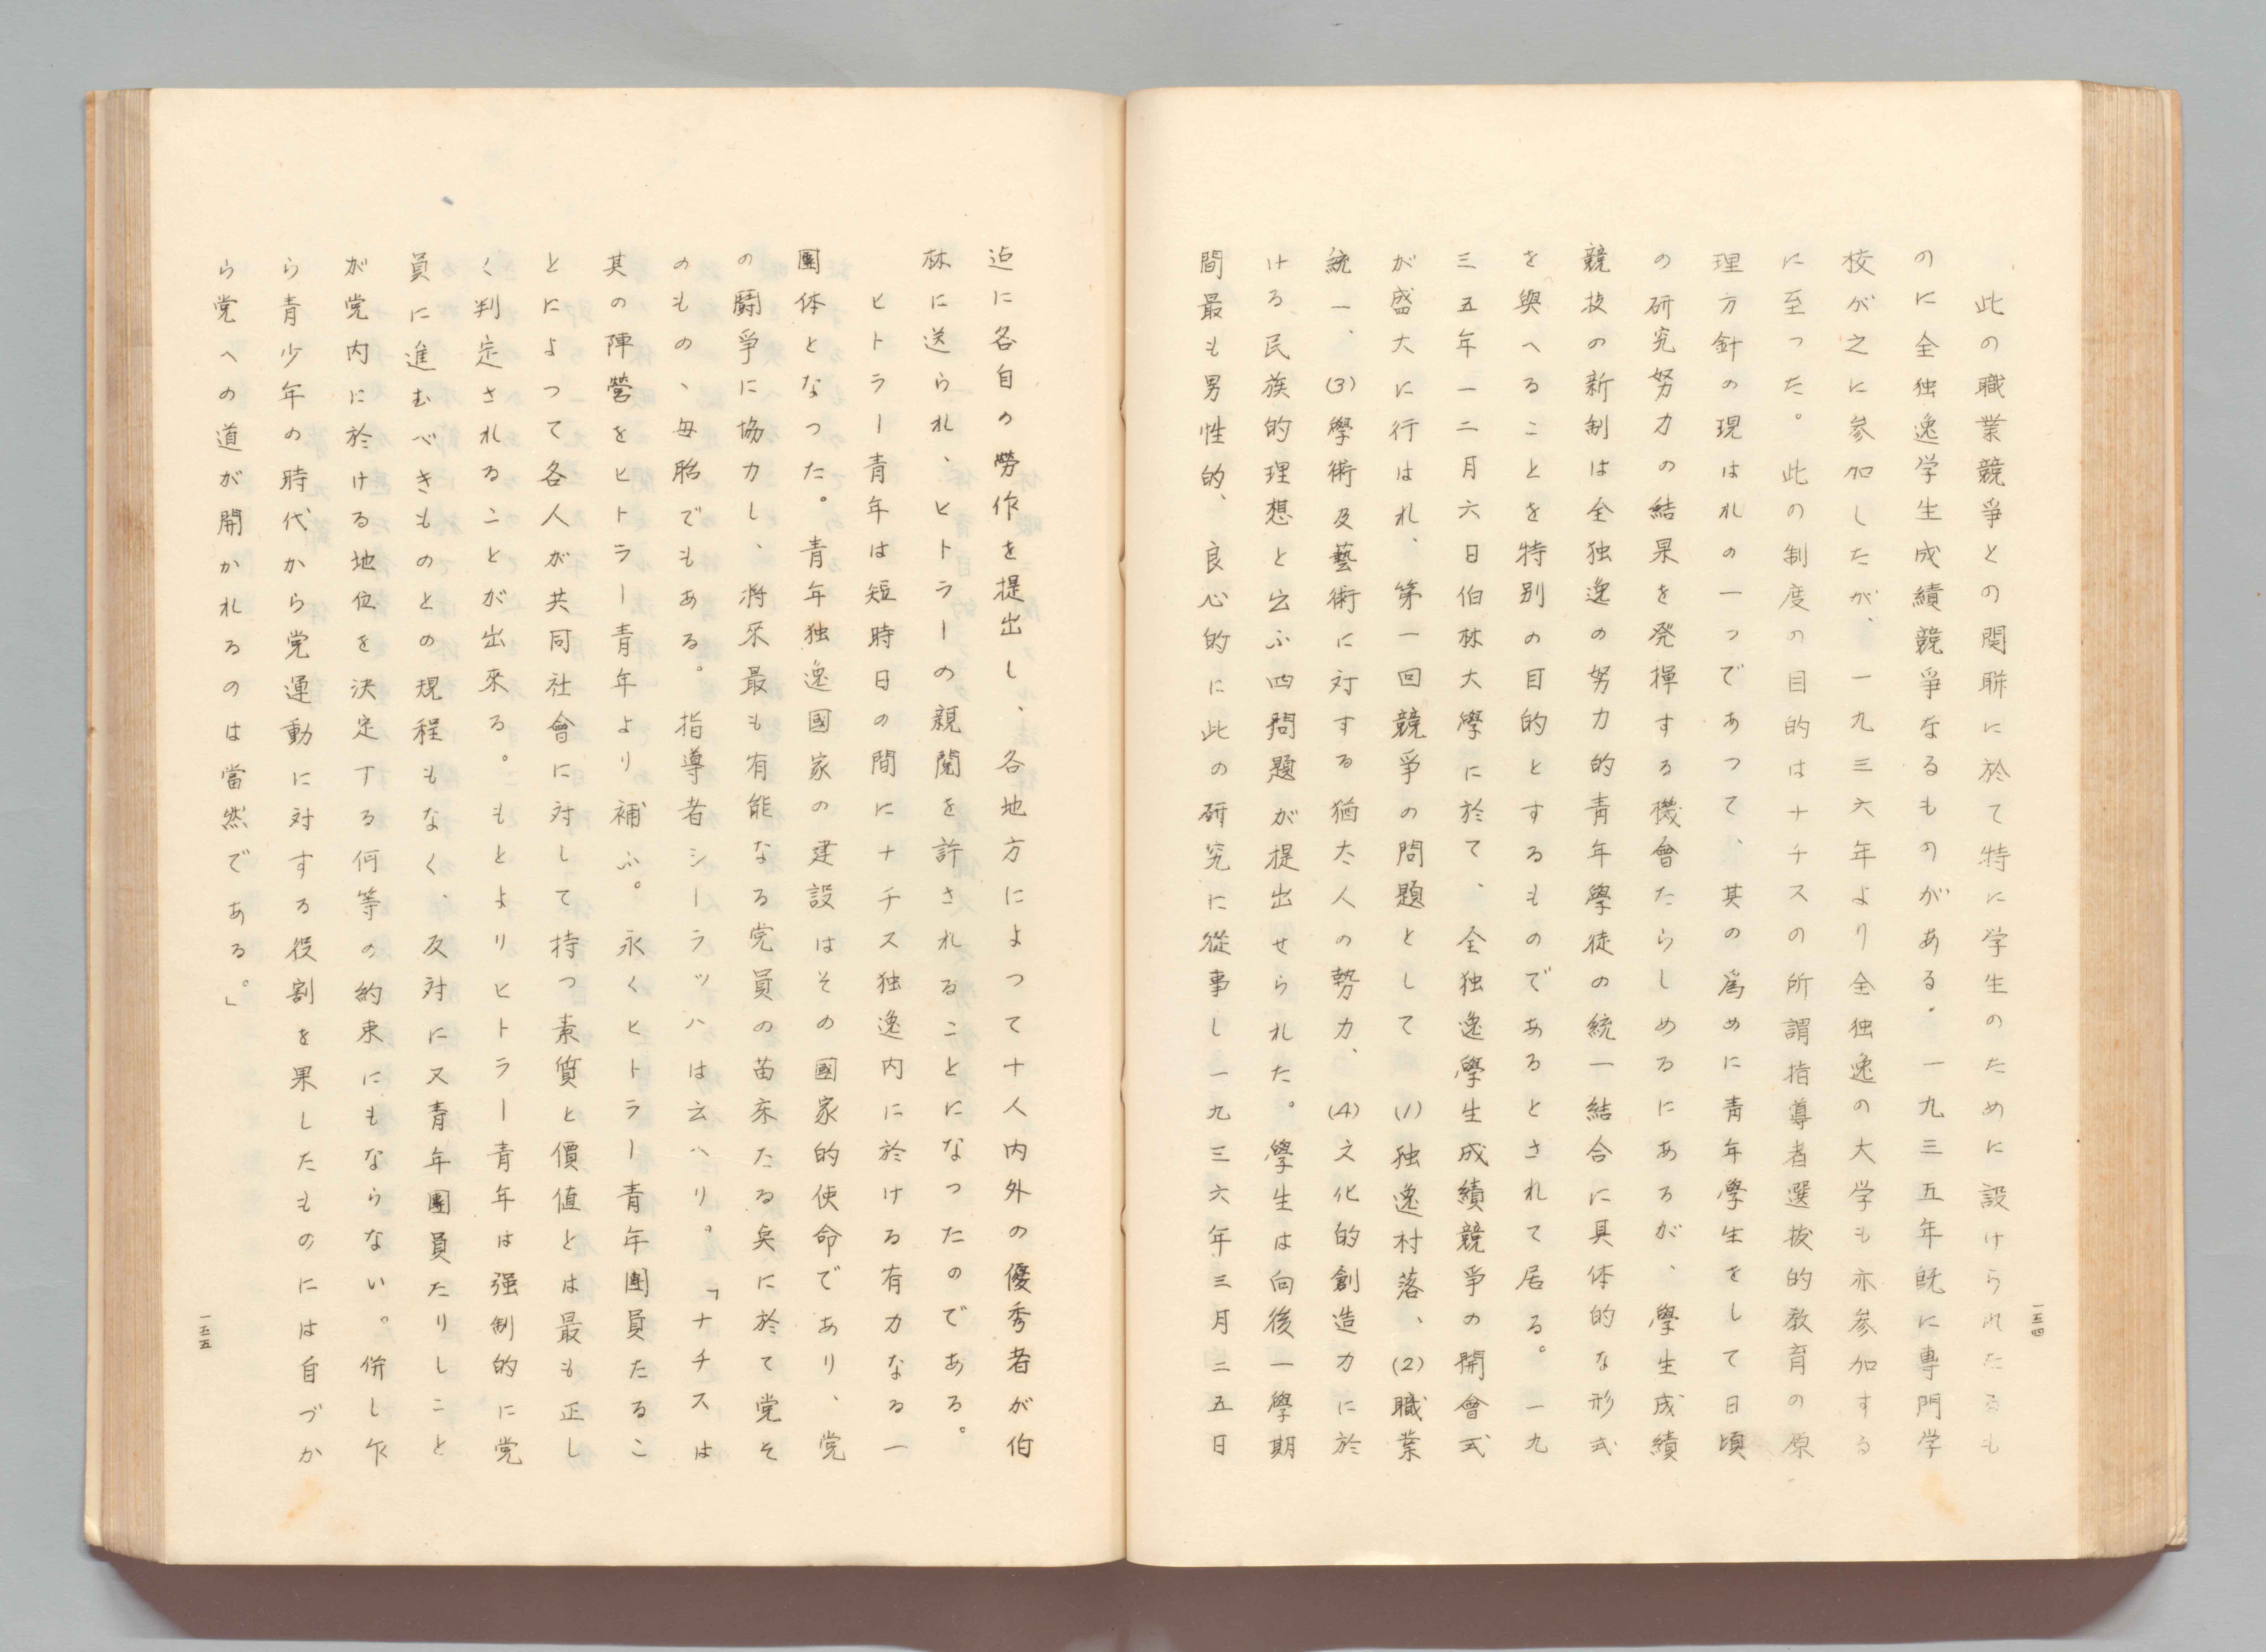 此の職業競爭との関聯に於て特に学生のために設けられたるも
のに全独逸学生成績競爭なるものがある。一九三五年既に專門学
校が之に参加したが、一九三六年より全独逸の大学も亦参加する
に至つた。此の制度の目的はナチスの所謂指導者選抜的教育の原
理方針の現はれの一つであつて、其の爲めに青年學生をして日頃
の研究努力の結果を発揮する機會たらしめるにあるが、學生成績
競技の新制は全独逸の努力的青年學徒の統一結合に具体的な形式
を與へることを特別の目的とするものであるとされて居る。一九
三五年一二月六日伯林大學に於て、全独逸學生成績競爭の開會式
が盛大に行はれ、第一回競爭の問題として⑴独逸村落、⑵職業
統一、⑶學術及藝術に対する猶太人の勢力、⑷文化的創造力に於
ける民族的理想と云ふ四問題が提出せられた。學生は向後一學期
間最も男性的、良心的に此の研究に從事し一九三六年三月二五日
一五四
迠に各自の勞作を提出し、各地方によつて十人内外の優秀者が伯
林に送られ、ヒトラーの親閲を許されることになつたのである。
ヒトラー青年は短時日の間にナチス独逸内に於ける有力なる一
團体となつた。青年独逸國家の建設はその國家的使命であり、党
の鬪爭に協力し、將來最も有能なる党員の苗床たる矣に於て党そ
のもの、母胎でもある。指導者シーラッハは云へり。「ナチスは
其の陣營をヒトラー青年より補ふ。永くヒトラー青年團員たるこ
とによつて各人が共同社會に対して持つ素質と價値とは最も正し
く判定されることが出來る。もとよりヒトラー青年は强制的に党
員に進むべきものとの規程もなく、反対に又青年團員たりしこと
が党内に於ける地位を決定する何等の約束にもならない。併し乍
ら青少年の時代から党運動に対する役割を果したものには自づか
ら党への道が開かれるのは當然である。」
一五五